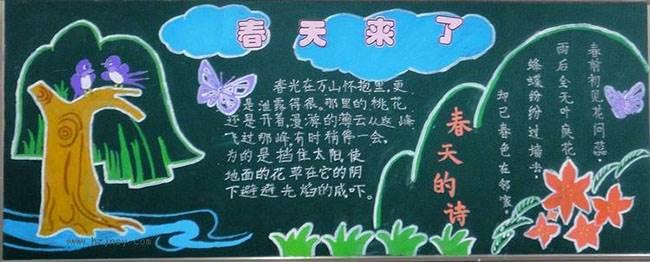 春天来了
春光在万山怀抱里,更
是泄露得很。那里的桃花
还是开着。漫游的薄云从这峰
飞过那峰,有时稍停一会,
为的是挡住太阳,使
地面的花草在它的阴
下避避光焰的威吓。
春天的诗
春前初见花间蕊
雨后全无叶底花
蜂蝶纷纷过墙去
却已春色在邻家